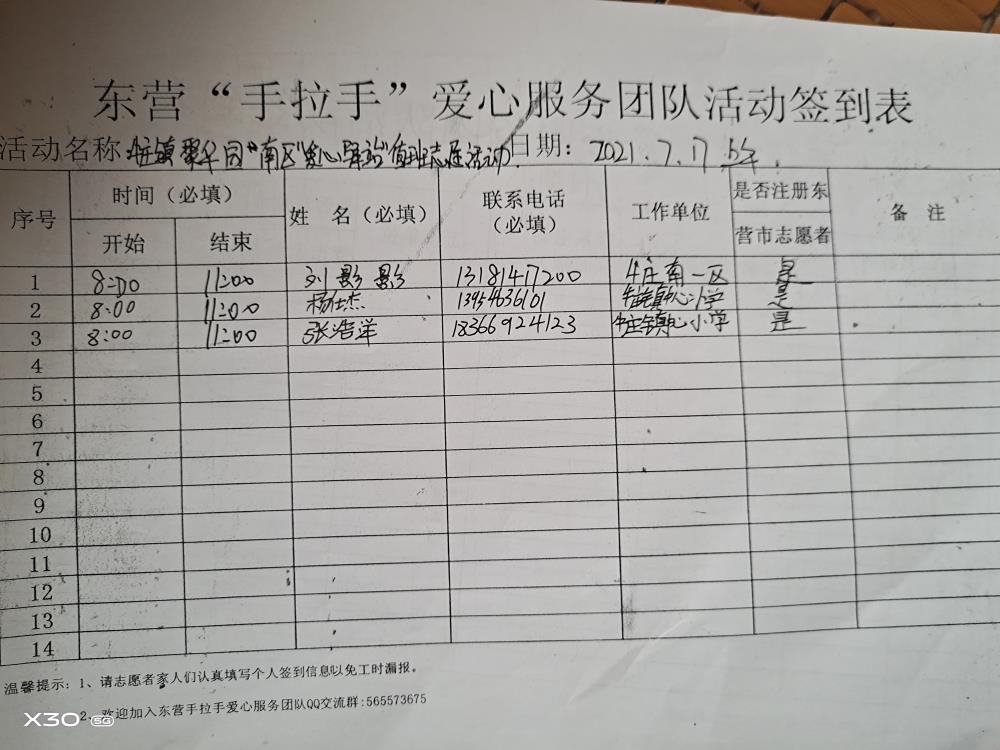 东营“手拉手”爱心服务团队活动签到表
活动名称:牛庄镇聚华园“南区”爱心驿站”值班志愿活动 日期: 2021.7.17 上午.
序号 时间（必填） 姓 名（必填） 联系电话（必填） 工作单位 是否注册东营市志愿者 备 注
开始 结束
1 8:00 11:00 刘影影 13181417200 牛庄南一区 是
2 8:00 11:00 杨仕杰 13954636101 牛庄镇中心小学 是
3 8:00 11:00 张浩洋 18366924123 牛庄镇中心小学 是
4
5
6
7
8
9
10
11
12
13
14
温馨提示：1、请志愿者家人们认真填写个人签到信息以免工时漏报。
2、欢迎加入东营手拉手爱心服务团队QQ交流群:565573675
X30 5G